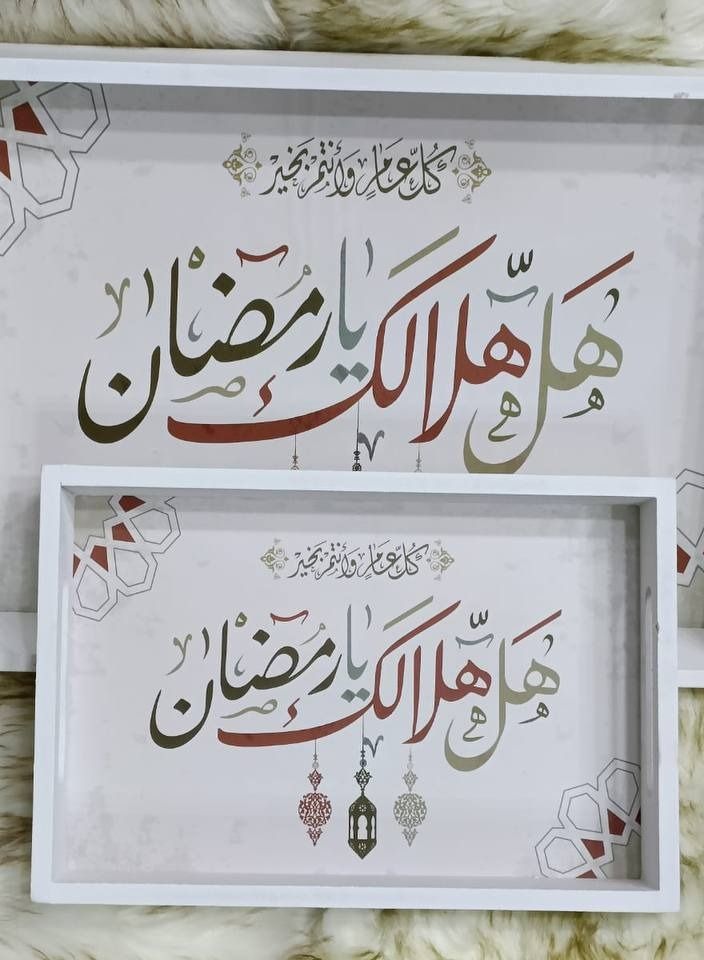 كُلّ عَامٍ وَأنتمْ بَخيرْ
هَلّ هلالك يا رمضان
كُلّ عَامٍ وَأنتمْ بَخيرْ
هَلّ هلالك يا رمضان